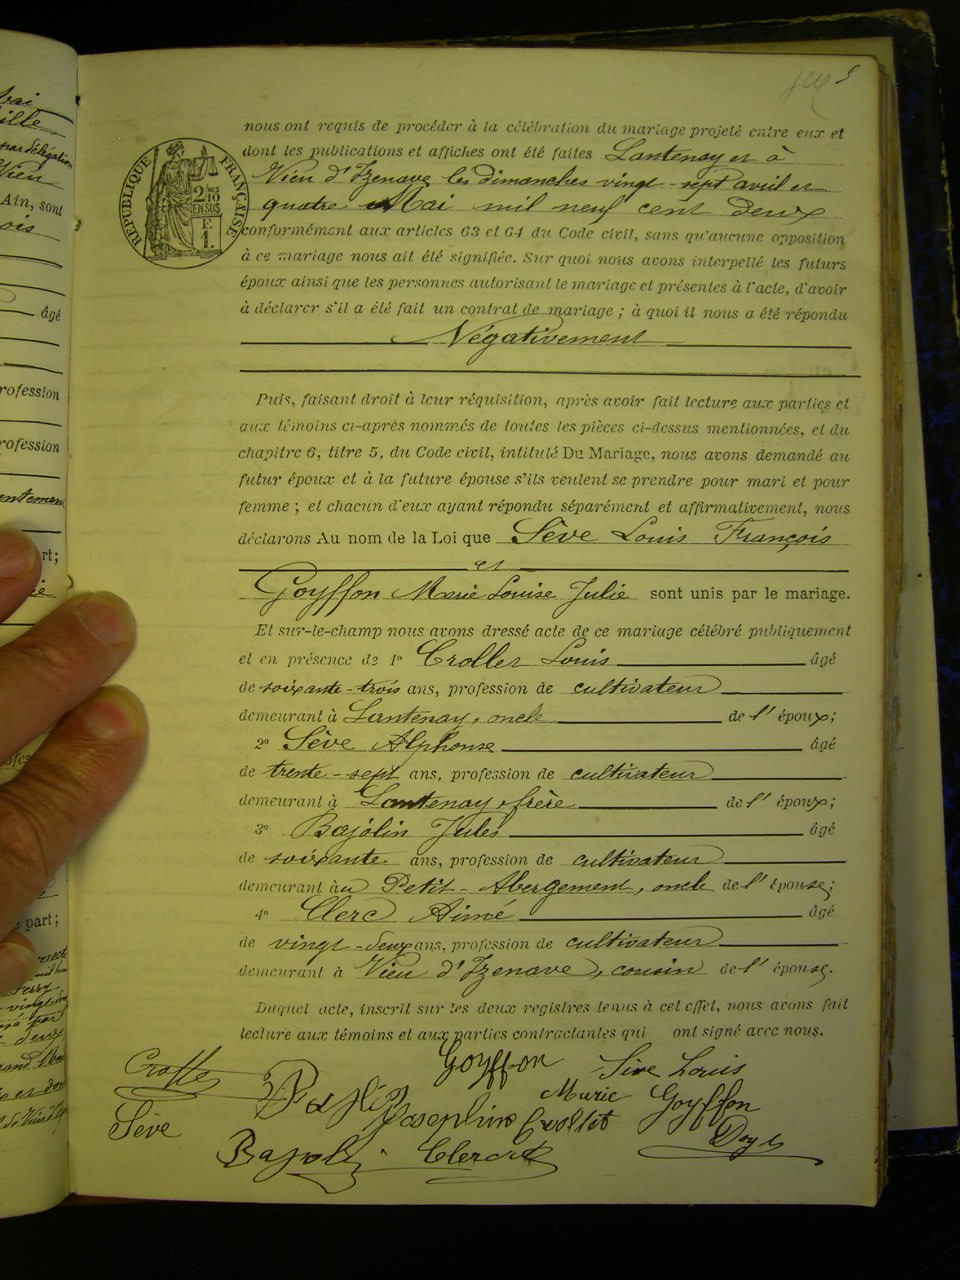 5
nous ont requis de procéder à la célébration du mariage projeté entre eux et
dont les publications et affiches ont été faites Lantenay et à
Vieu d'Izenave les dimanches vingt-sept avril et
quatre Mai mil neuf cent deux
conformément aux articles 63 et 64 du Code civil, sans qu'aucune opposition
à ce mariage nous ait été signifiée. Sur quoi nous avons interpellé les futurs
époux ainsi que les personnes autorisant le mariage et présentes à l'acte, d'avoir
à déclarer s'il a été fait un contrat de mariage ; à quoi il nous a été répondu
Négativement
Puis, faisant droit à leur réquisition, après avoir fait lecture aux parties et
aux témoins ci-après nommés de toutes les pièces ci-dessus mentionnées, et du
chapitre 6, titre 5, du Code civil, intitulé Du Mariage, nous avons demandé au
futur époux et à la future épouse s'ils veulent se prendre pour mari et pour
femme ; et chacun d'eux ayant répondu séparément et affirmativement, nous
déclarons Au nom de la Loi que Sève Louis François
et
Goyffon Marie Louise Julie sont unis par le mariage.
Et sur-le-champ nous avons dressé acte de ce mariage célébré publiquement
et en présence de 1° Crollet Louis âgé
de soixante-trois ans, profession de cultivateur
demeurant à Lantenay, oncle de l'époux;
2° Sève Alphonse âgé
de trente-sept ans, profession de cultivateur
demeurant à Lantenay, frère de l'époux;
3° Bajolin Jules âgé
de soixante ans, profession de cultivateur
demeurant au Petit-Abergement, oncle de l'épouse;
4° Clerc Aimé âgé
de vingt-deux ans, profession de cultivateur
demeurant à Vieu d'Izenave, cousin de l'épouse.
Duquel acte, inscrit sur les deux registres tenus à cet effet, nous avons fait
lecture aux témoins et aux parties contractantes qui ont signé avec nous.
Goyffon Sève Louis
Josephine Crollet Marie Goyffon
Sève
Clerc
RÉPUBLIQUE FRANÇAISE
2/10
EN SUS
F.
1.